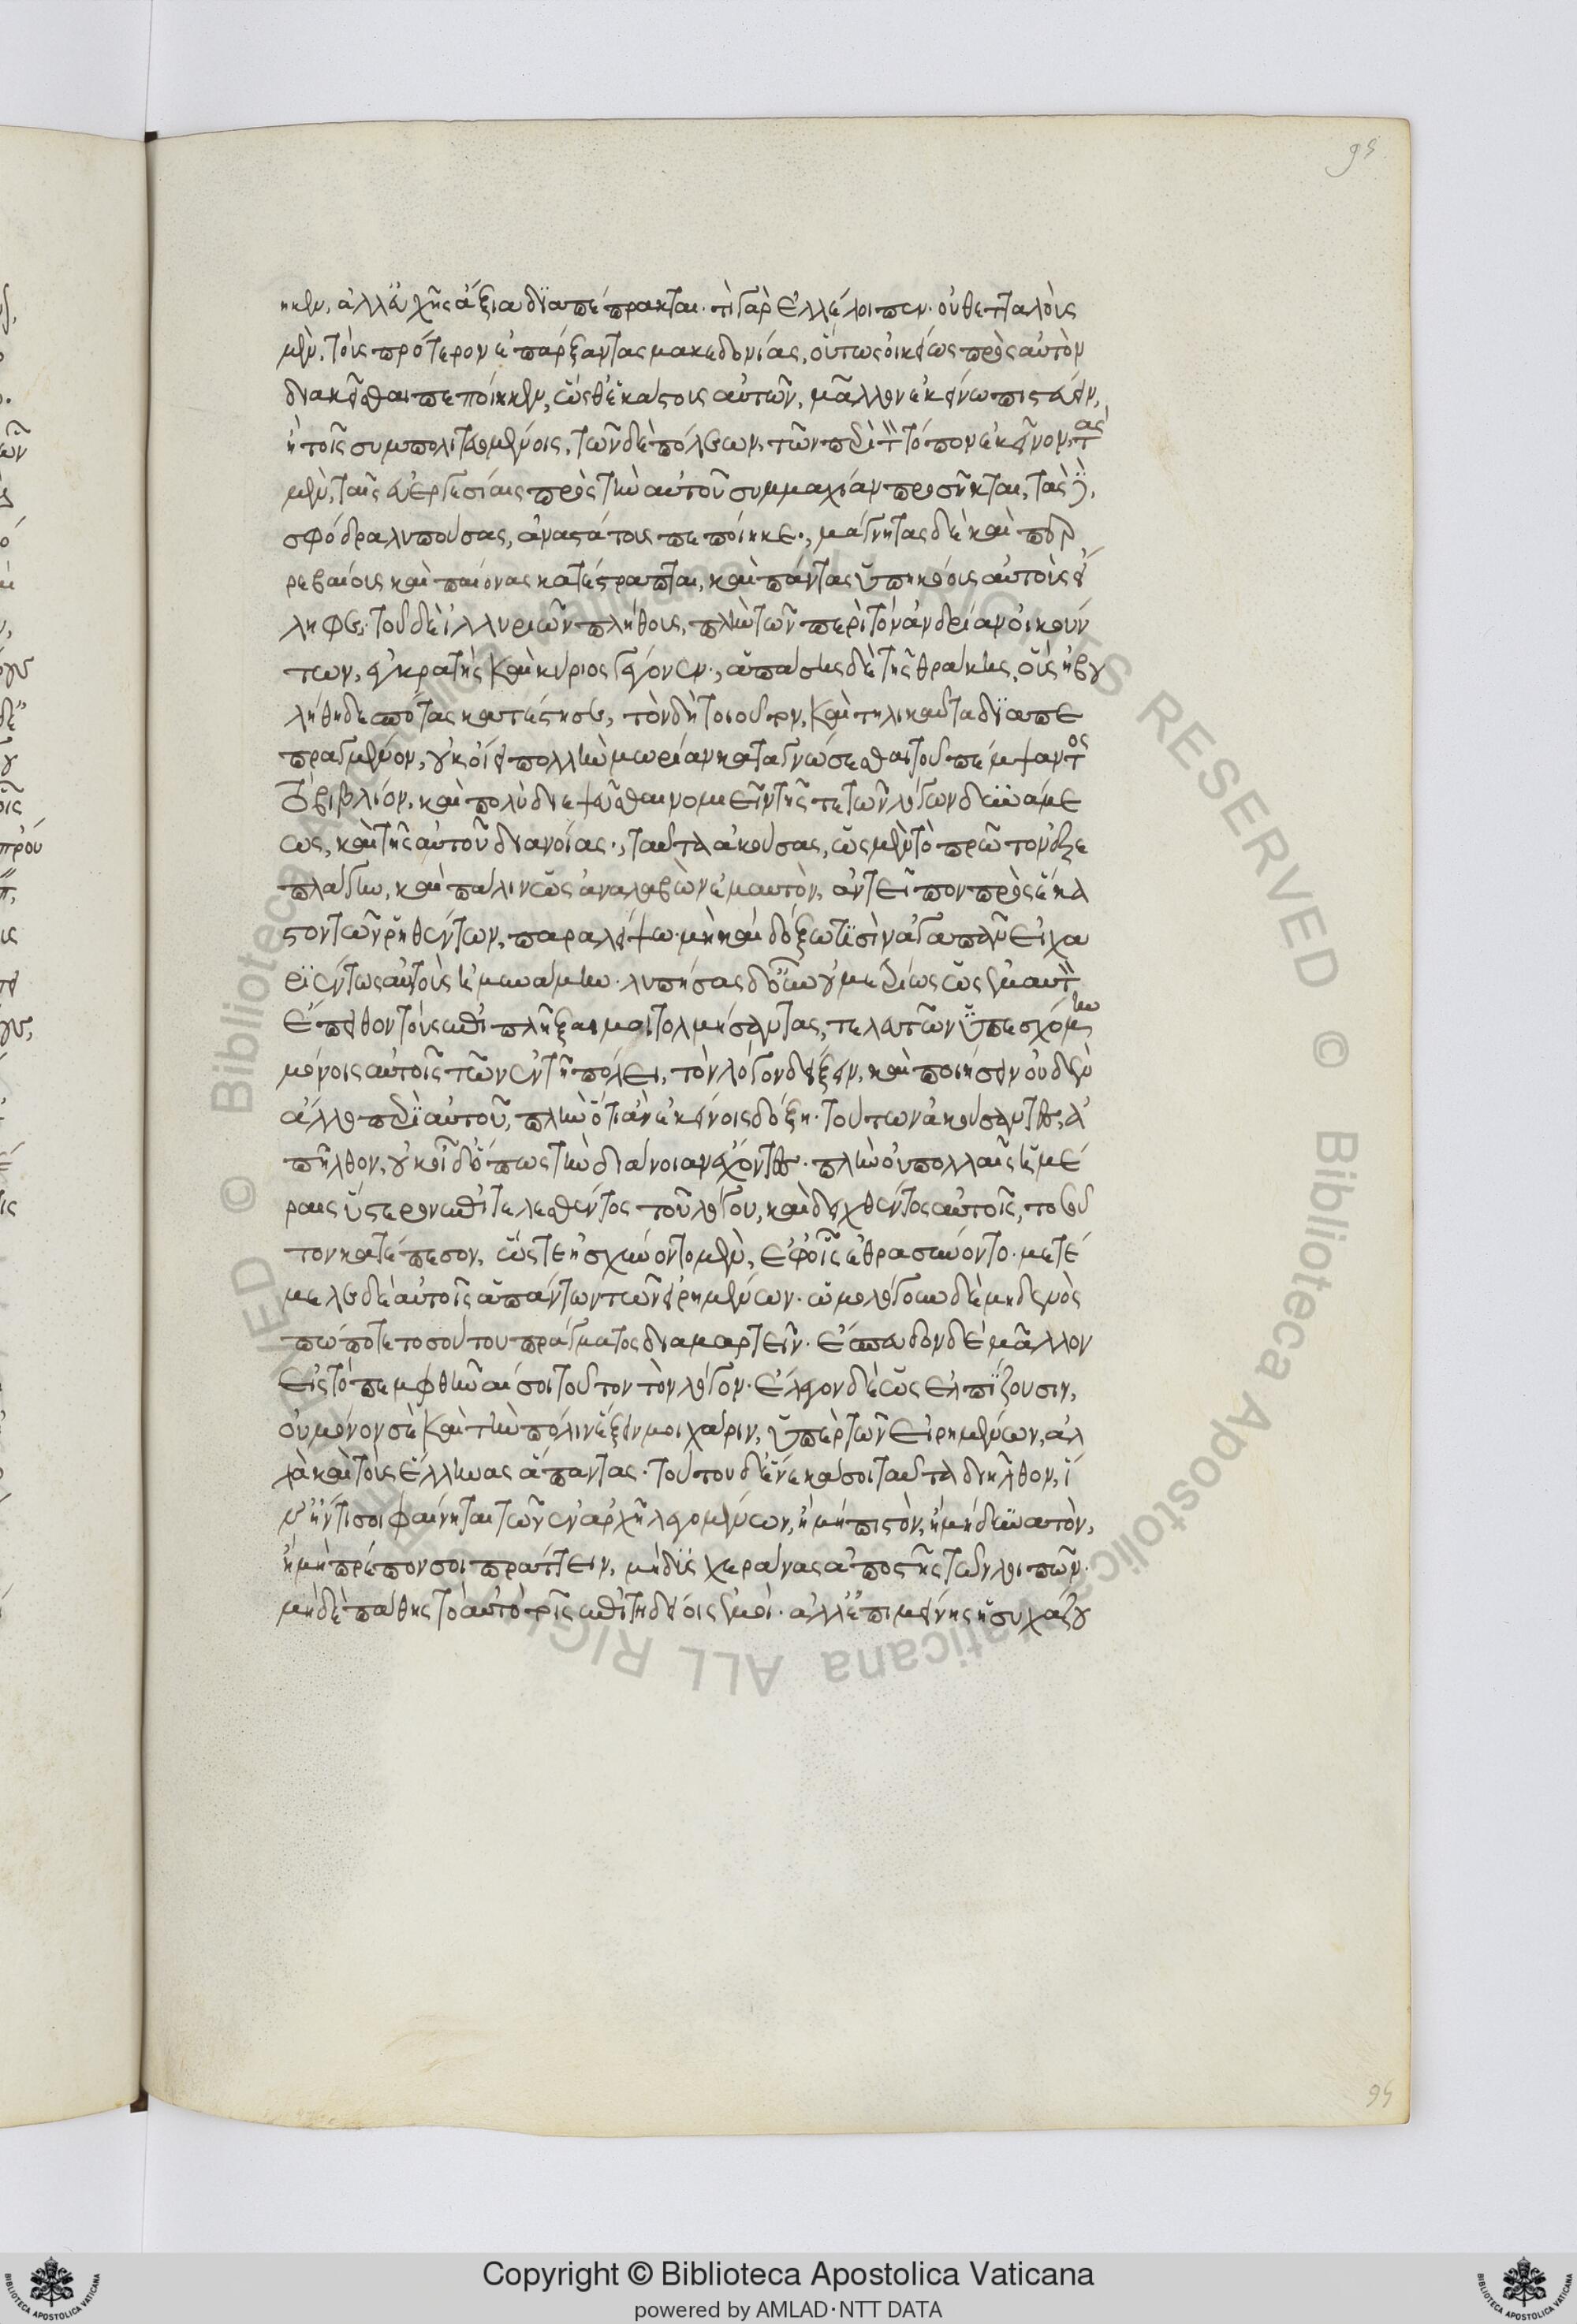 95
ηκεν, ἀλλ' εὐχῆς ἄξια διαπέπρακται. τί γὰρ ἐλλέλοιπεν. οὐ θετταλοὺς
μὲν, τοὺς πρότερον ἐπάρξαντας μακεδονίας, οὕτως οἰκείως πρὸς αὐτὸν
διακεῖσθαι πεποίηκεν, ὥσθ' ἑκάστους αὐτῶν, μᾶλλον ἐκείνω πιστεύειν,
ἢ τοῖς συμπολιτευομένοις. τῶν δὲ πόλεων, τῶν περὶ τὸν τόπον ἐκεῖνον, τὰς
μὲν, ταῖς εὐεργεσίαις πρὸς τὴν αὑτοῦ συμμαχίαν προσῆκται, τὰς δὲ,
σφόδρα λυπούσας, ἀναστάτους πεποίηκε., μάγνητας δὲ καὶ περ
ρεβαίους καὶ παίονας κατέστραπται, καὶ πάντας ὑπηκόους αὐτοὺς εἴ
ληφε. τοῦ δὲ ἰλλυριῶν πλήθους, πλὴν τῶν περὶ τὸν ἀνδρίαν οἰκούν
των, ἐγκρατὴς καὶ κύριος γέγονεν., ἁπάσης δὲ τῆς θράκης, οὓς ἠβου
λήθη δεσπότας κατέστησε, τὸν δὴ τοιοῦτον, καὶ τηλικαῦτα διαπε
πραγμένον, οὐκ οἴει πολλὴν μωρίαν καταγνώσεσθαι τοῦ πέμψαντος
τὸ βιβλίον, καὶ πολὺ διεψεῦσθαι νομιεῖν τῆς τε τῶν λόγων δυνάμε
ως, καὶ τῆς αὑτοῦ διανοίας., ταῦτα ἀκούσας, ὡς μὲν τὸ πρῶτον ἐξε
πλάγην, καὶ πάλιν ὡς ἀναλαβὼν ἐμαυτὸν, ἀντεῖπον πρὸς ἕκα
στον τῶν ῥηθέντων, παραλείψω. μὴ καὶ δόξω τισὶν ἀγαπᾶν εἰ χα
ριέντως αὐτοὺς ἠμυνάμην. λυπήσας δ' οὖν οὐ μετρίως ὡς ἐμαυτὸν
ἔπειθον τοὺς ἐπιπλῆξαί μοι τολμήσαντας, τελευτῶν ὑπεσχόμην
μόνοις αὐτοῖς τῶν ἐν τῆ πόλει, τὸν λόγον δείξειν, καὶ ποιήσειν οὐδὲν
ἄλλο περὶ αὐτοῦ, πλὴν ὅ τι ἂν ἐκείνοις δόξη. τούτων ἀκούσαντες, ἀ
πῆλθον, οὐκ οἶδ' ὅπως τὴν διάνοιαν ἔχοντες. πλὴν οὐ πολλαῖς ἡμέ
ραις ὕστερον ἐπιτελεσθέντος τοῦ λόγου, καὶ δειχθέντος αὐτοῖς, τοσοῦ
τον κατέπεσον, ὥστε ἠσχύνοντο μὲν, ἐφ' οἷς ἐθρασύνοντο. μετέ
μελε δὲ αὐτοῖς ἁπάντων τῶν εἰρημένων. ὡμολόγουν δὲ μηδενὸς
πώποτε τοσούτου πράγματος διαμαρτεῖν. ἔσπευδον δὲ μᾶλλον
εἰς τὸ πεμφθῆναί σοι τοῦτον τὸν λόγον. ἔλεγον δὲ ὡς ἐλπίζουσιν,
οὐ μόνον σὲ καὶ τὴν πόλιν ἕξειν μοι χάριν, ὑπὲρ τῶν εἰρημένων, ἀλ
λὰ καὶ τοὺς ἕλληνας ἅπαντας. τούτου δ' ἕνεκά σοι ταῦτα διῆλθον, ἵ
ν' ἤν τι σοι φαίνηται τῶν ἐν ἀρχῆ λεγομένων, ἢ μὴ πιστὸν, ἢ μὴ δυνατὸν,
ἢ μὴ πρέπον σοι πράττειν, μὴ δυσχεράνας ἀποστῆς τῶν λοιπῶν.
μηδὲ πάθης τὸ αὐτὸ τοῖς ἐπιτηδείοις ἐμοῖ. ἀλλ' ἐπιμείνης ἡσυχάζου
95
Copyright © Biblioteca Apostolica Vaticana
powered by AMLAD·NTT DATA